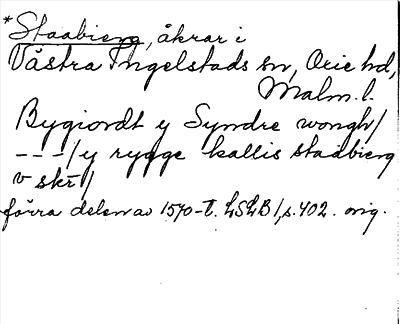 *Staabierg, åkrar i
Västra Ingelstads sn, Oxie hd,
Malm. l.
Bygiordt y Syndre wongh/
---/y rygge kallis staabierg
v skr/
förra delen av 1570-t. LSLB 1, s. 402. orig.